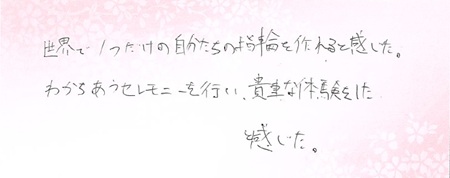 世界で1つだけの自分たちの指輪を作れると感じた。
わかちあうセレモニーを行い、貴重な体験をした
感じた。